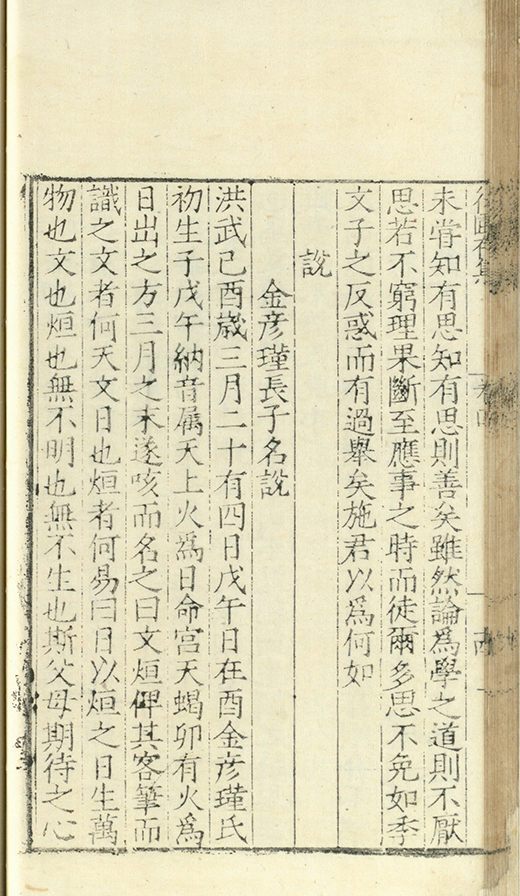 未甞知有思知有思則善矣雖然論爲學之道則不厭
思若不窮理果斷至應事之時而徒爾多思不免如季
文子之反惑而有過舉矣施君以爲何如
說
金彦瑾長子名說
洪武己酉歲三月二十有四日戊午日在酉金彦瑾氏
初生子戊午納音属天上火爲日命宮天蝎卯有火爲
日出之方三月之末遂咳而名之曰文烜俾其客筆而
識之文者何天文日也烜者何易曰日以烜之日生萬
物也文也烜也無不明也無不生也斯父母期待之心